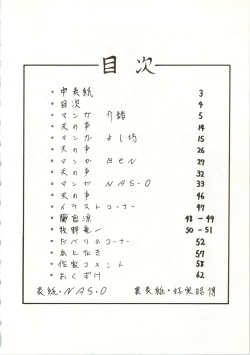 目次
・中表紙 3
・目次 4
・マンガ 介錯 5
・天の声 14
・マンガ よし坊 15
・天の声 26
・マンガ BEN 27
・天の声 32
・マンガ NAS・O 33
・天の声 46
・イラストコーナー 47
・蘭宮涼 48-49
・牧野竜一 50-51
・だべりのコーナー 52
・あとがき 57
・作家コメント 58
・おくづけ 62
表紙・NAS・O 裏表紙・